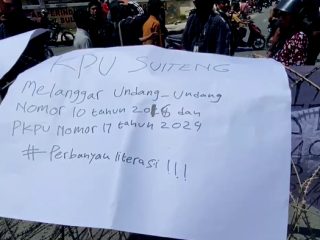 KPU SULTENG
Melanggar Undang-Undang
Nomor 10 tahun 2016 dan
PKPU Nomor 17 tahun 2024
#-Perbanyak literasi !!!